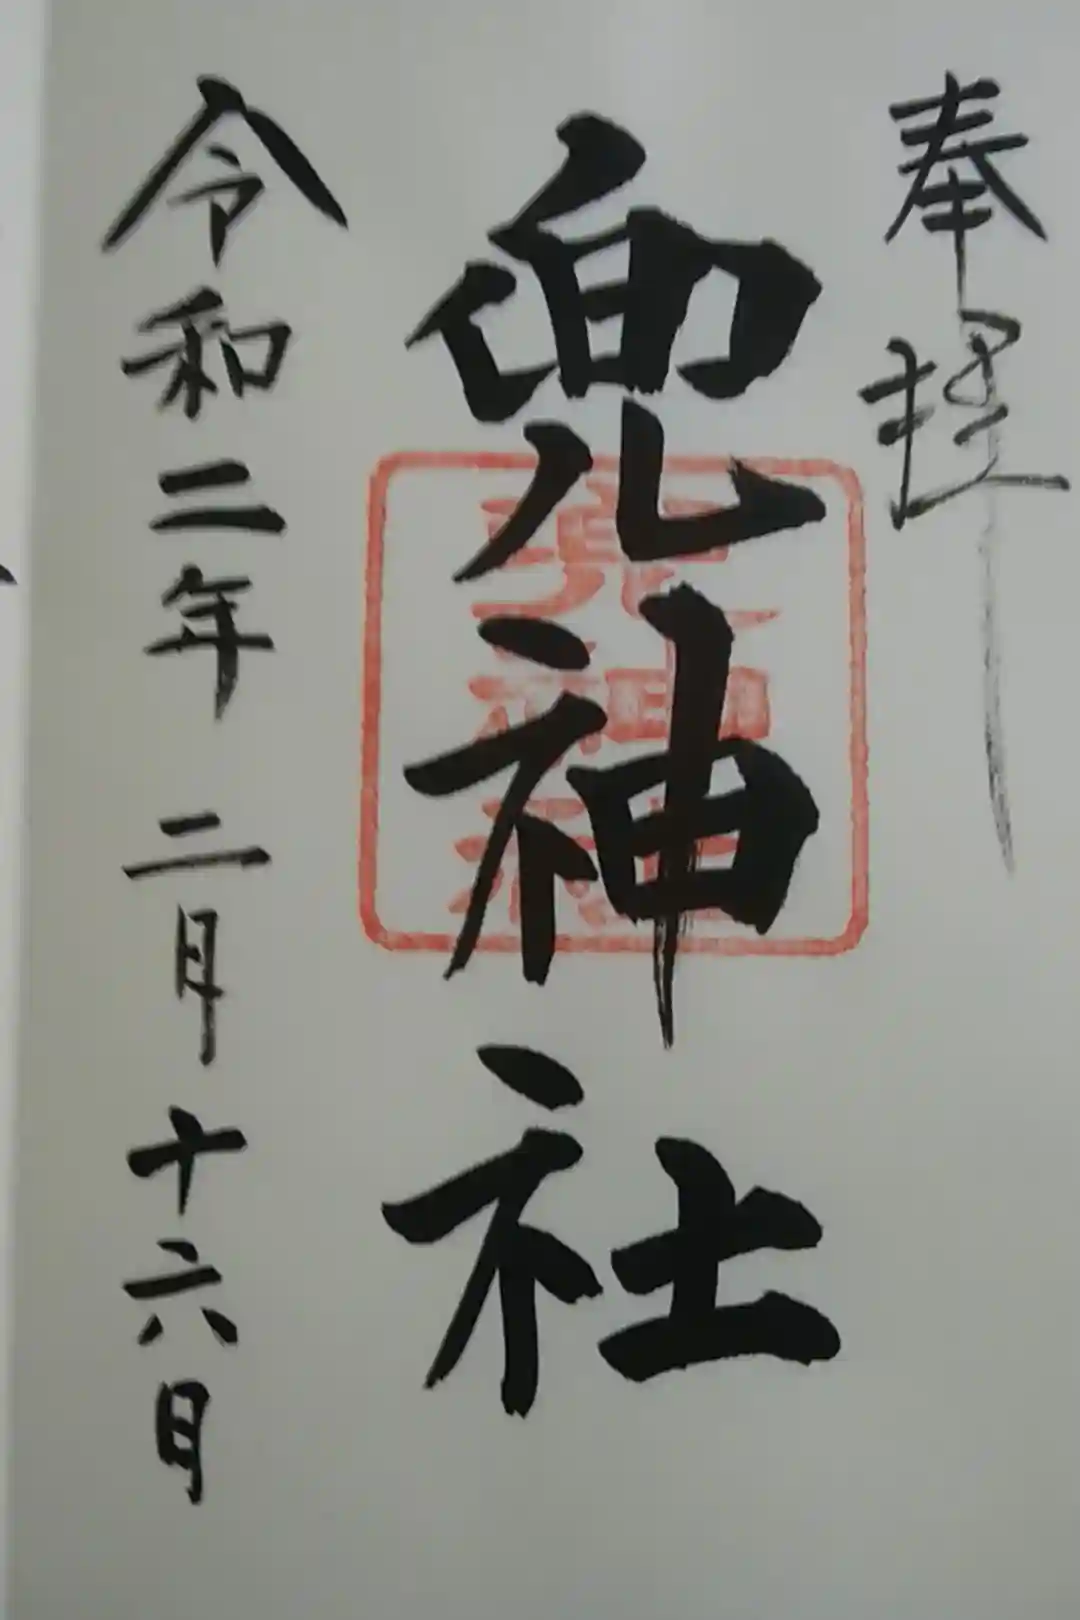 奉拝
兜神社
兜神社
令和二年 二月十六日